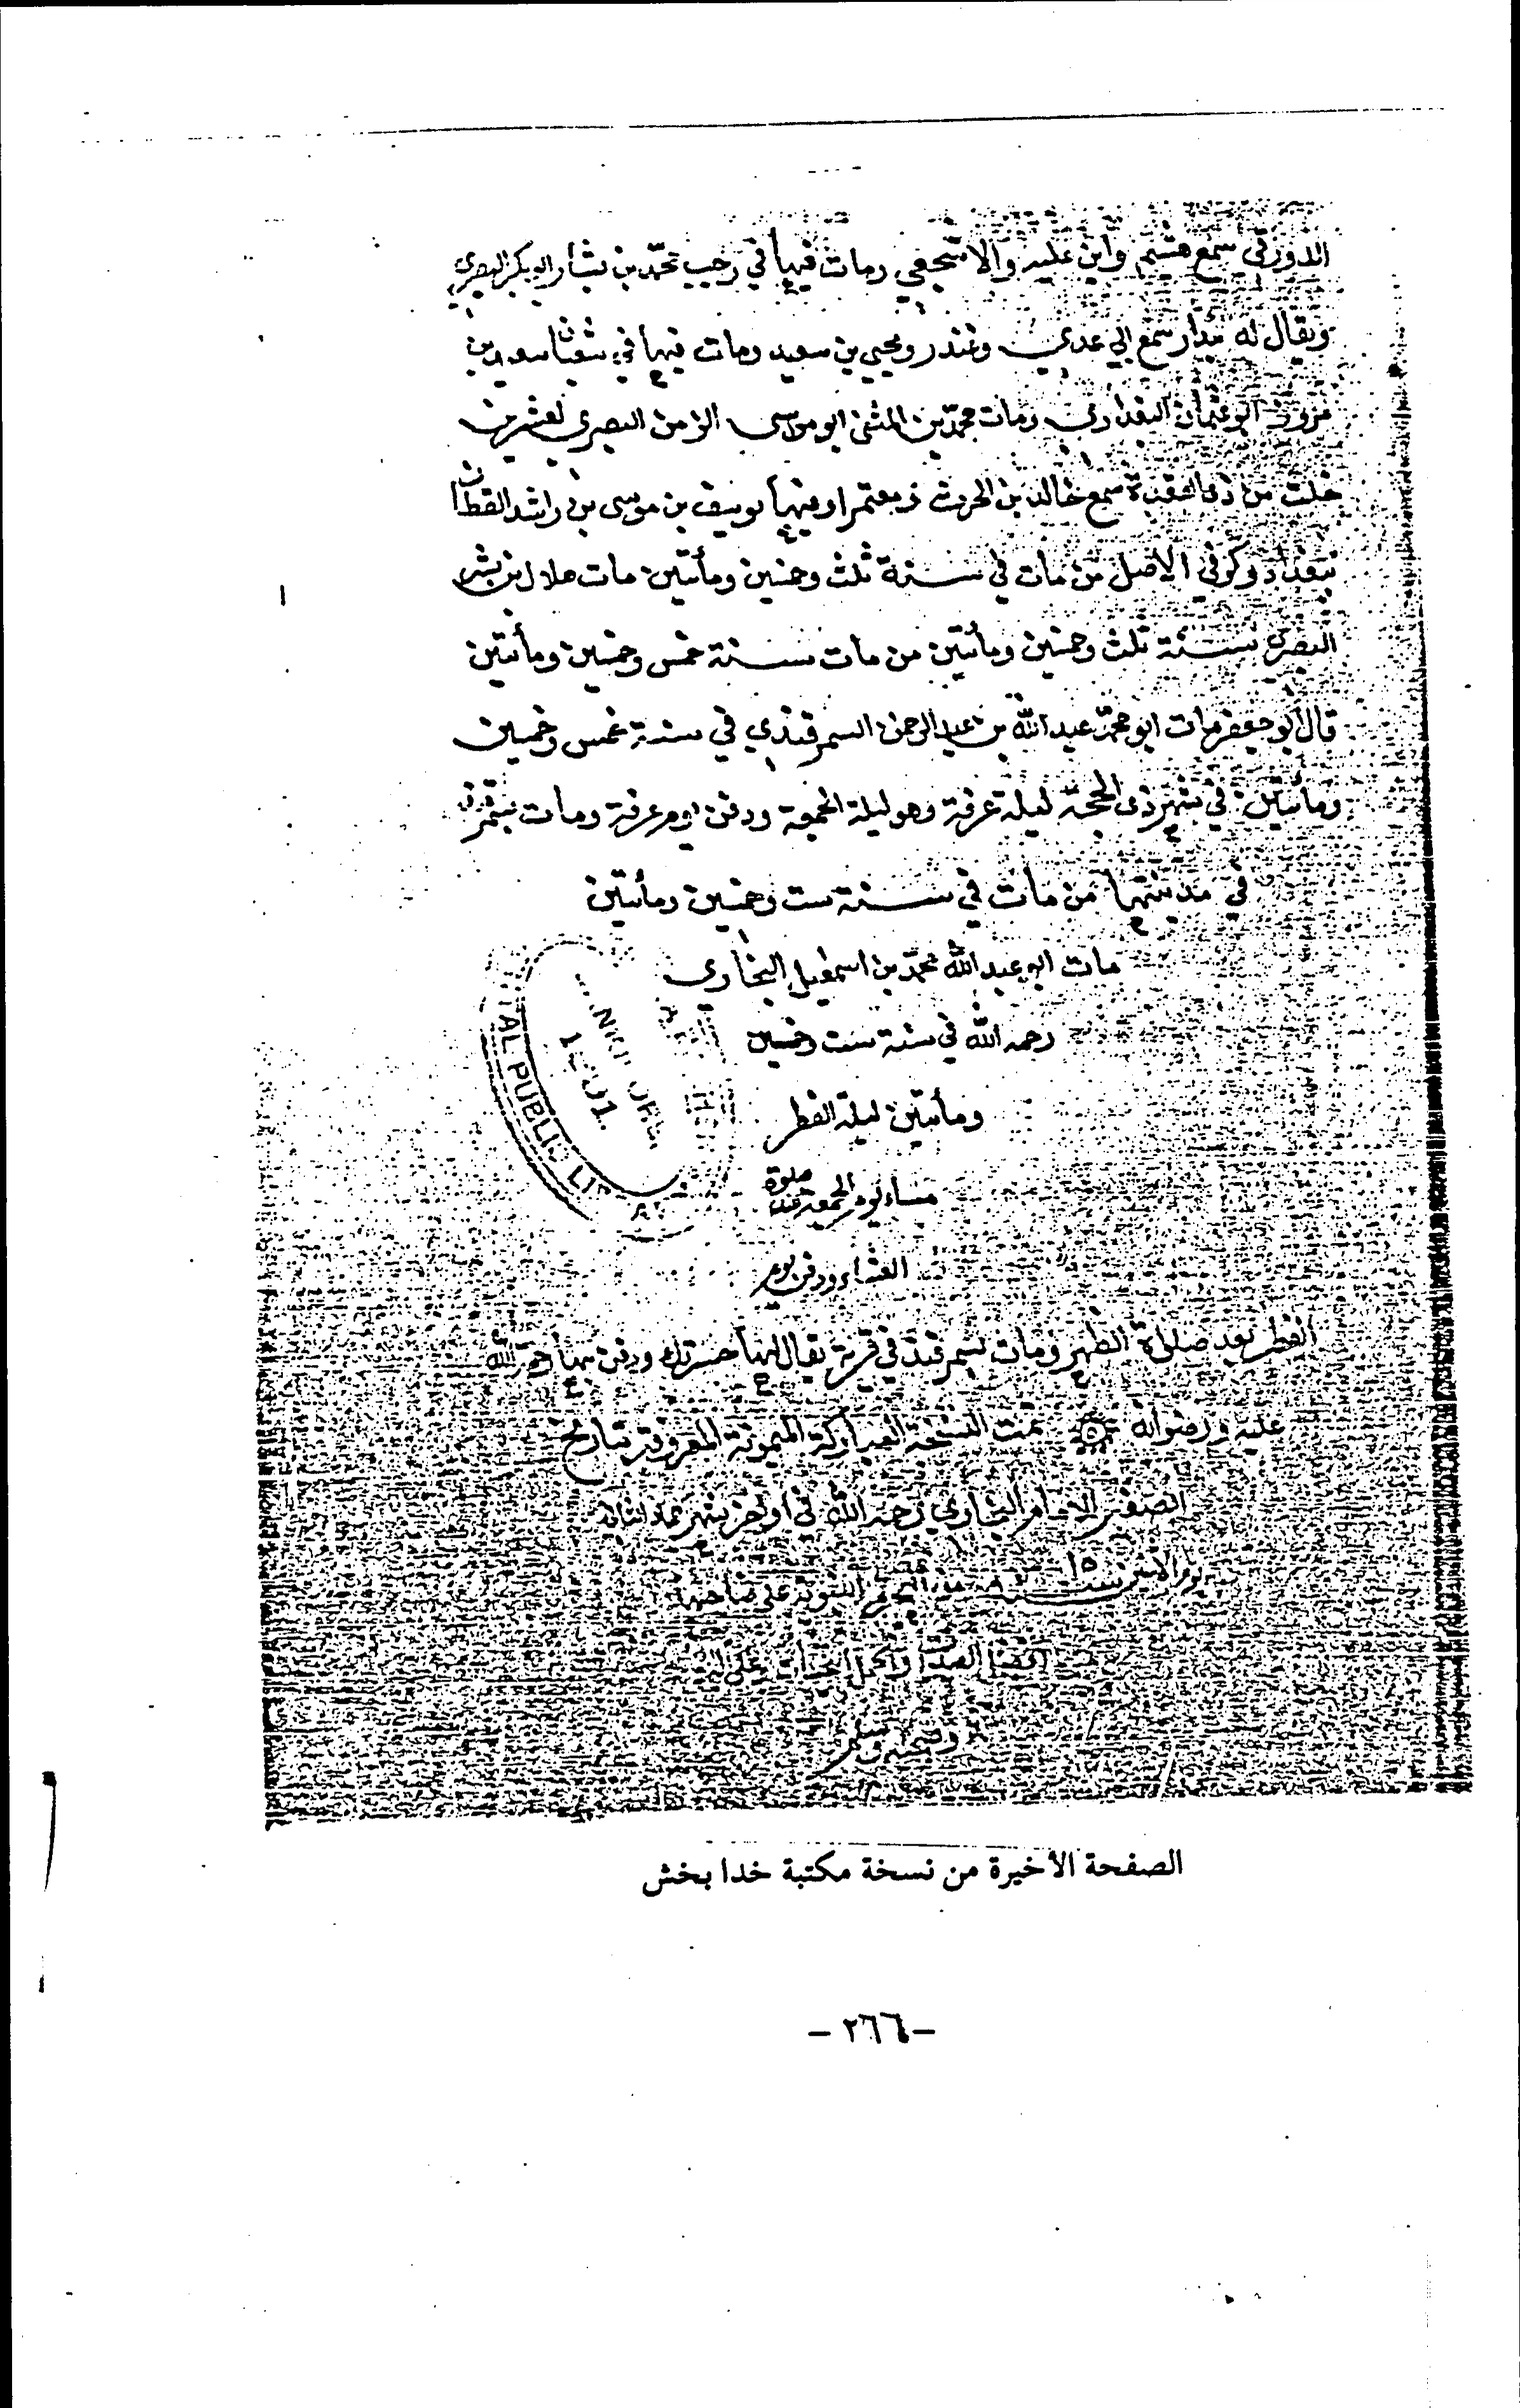 الدورقي سمع هشيم وابن علية والاشجعي ومات فيها في رجب محمّد بن بشار ابو بكر البصري
ويقال له بندار سمع ابي عدي وغندر ويحيى بن سعيد ومات فيها في شعبان سعيد بن
ابو عثمان البغدادي ومات محمّد بن المثنى ابو موسى الزمن البصري لعشرين
خلت من ذي القعدة سمع خالد بن الحرث ومعتمرا وفيها يوسف بن موسى بن راشد القطان
ببغداد وكوفي الاصل من مات في سنة ثلث وخمسين ومأتين مات هلال بن بشر
البصري سنة ثلث وخمسين ومأتين من مات سنة خمس وخمسين ومأتين
قال ابو جعفر مات ابو محمّد عبد الله بن عبد الرحمن السمرقندي في سنة خمس وخمسين
ومأتين في شهر ذي الحجة ليلة عرفة وهو ليلة الجمعة ودفن يوم عرفة ومات بسمرقند
في مدينتها من مات في سنة ست وخمسين ومأتين
مات ابو عبد الله محمّد بن اسمعيل البخاري
رحمه الله في سنة ست وخمسين
ومأتين ليلة الفطر
مساء يوم الجمعة عند صلوة
العشاء ودفن يوم
الفطر بعد صلاة الظهر ومات بسمرقند في قرية يقال لها خرتنك ودفن بها رحمة الله
عليه ورضوانه تمت النسخة المباركة الميمونة المعروفة بتاريخ
الصغير الامام البخاري رحمه الله في اواخر شهر
يوم الاثنين
النبوية على صاحبها
افضل
وصحبه وسلم
AL PUBLIC LI
الصفحة الأخيرة من نسخة مكتبة خدا بخش
– ٢٦٦ –